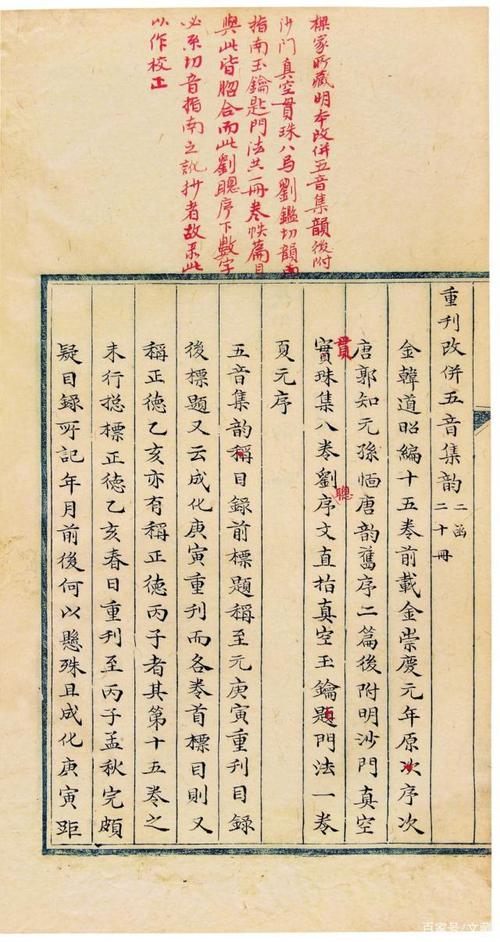 樑家所藏明本改併五音集韻後附
沙门真空貫珠八马劉鑑切韻
指南玉鑰匙門法共一冊卷帙篇目
與此皆昭合而此劉聰序下數字
必系切音指南之訛抄者故录此
以作校正
重刊改併五音集韵 二函
二十冊
金韓道昭編十五卷前載金崇慶元年原次序次
唐郭知元孫愐唐韵舊序二篇後附明沙門真空
貫
實珠集八卷劉序文直指真空玉鑰匙門法一卷
聰
夏元序
五音集韵稱目録前標題稱至元庚寅重刊目録
後標題又云成化庚寅重刊而各卷首標目則又
稱正德乙亥亦有稱正德丙子者其第十五卷之
末行揔標正德乙亥春日重刊至丙子孟秋完頗
疑目録所記年月前後何以懸殊且成化庚寅距
百家号/文